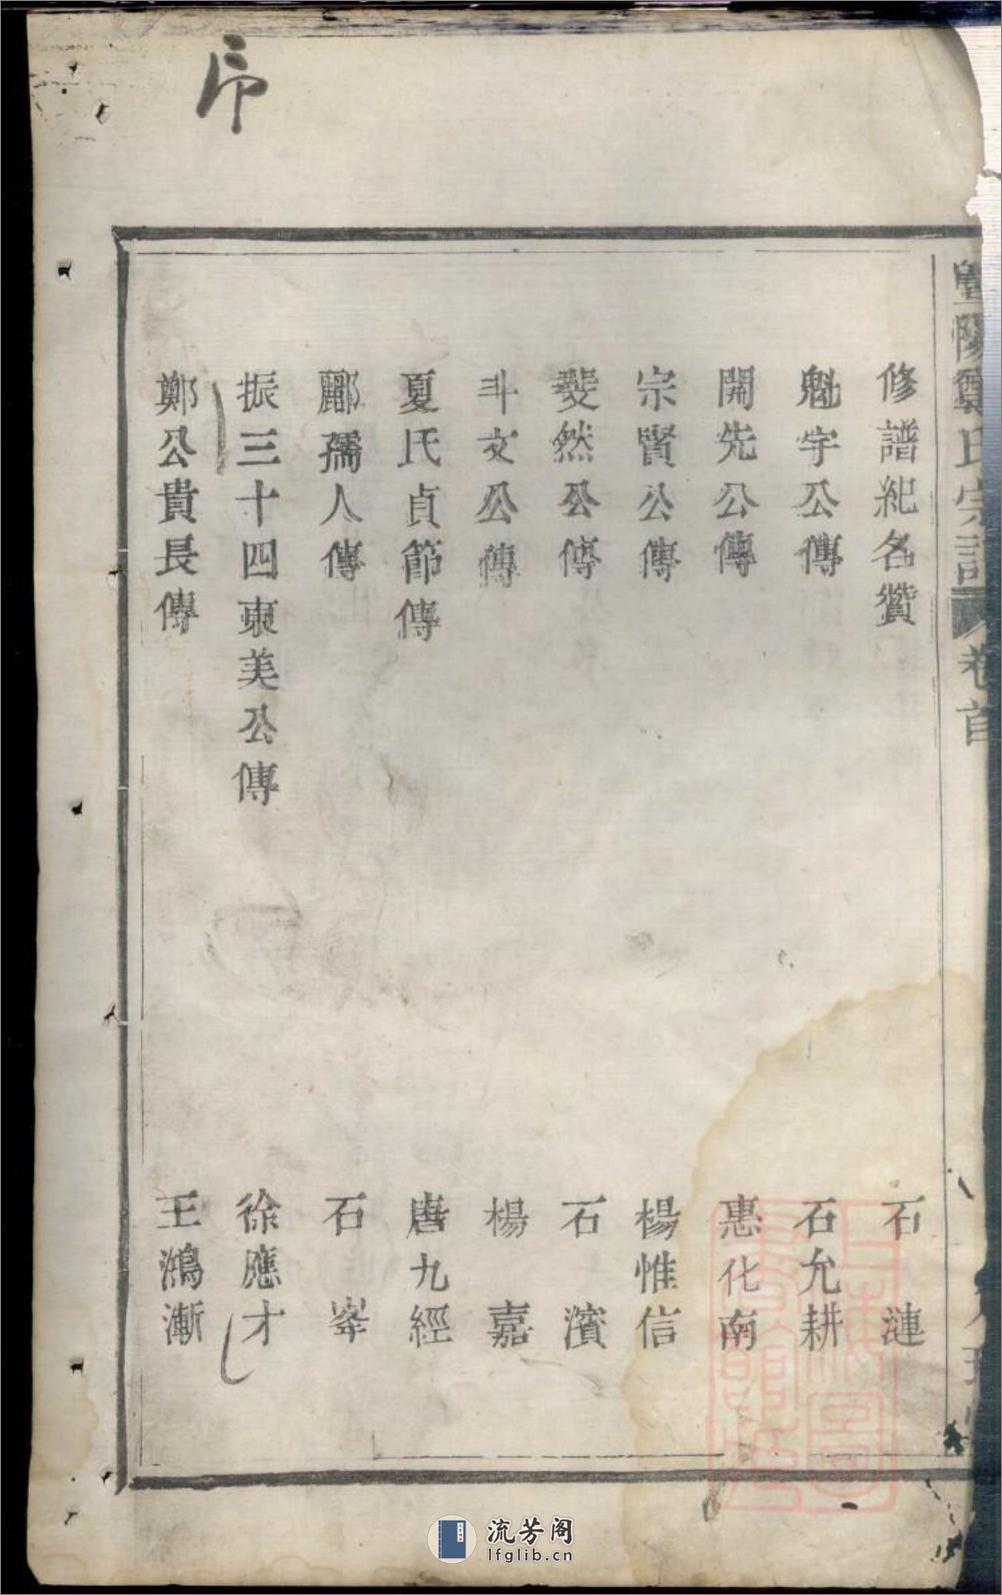 序
暨陽鄭氏宗譜 卷首
修譜紀名贊 石漣
魁宇公傳 石允耕
開先公傳 惠化南
宗賢公傳 楊惟信
斐然公傳 石濱
斗文公傳 楊嘉
夏氏貞節傳 唐九經
酈孺人傳 石峯
振三十四東美公傳 徐應才
鄭公貴長傳 王鴻漸
流芳阁
lfglib.cn